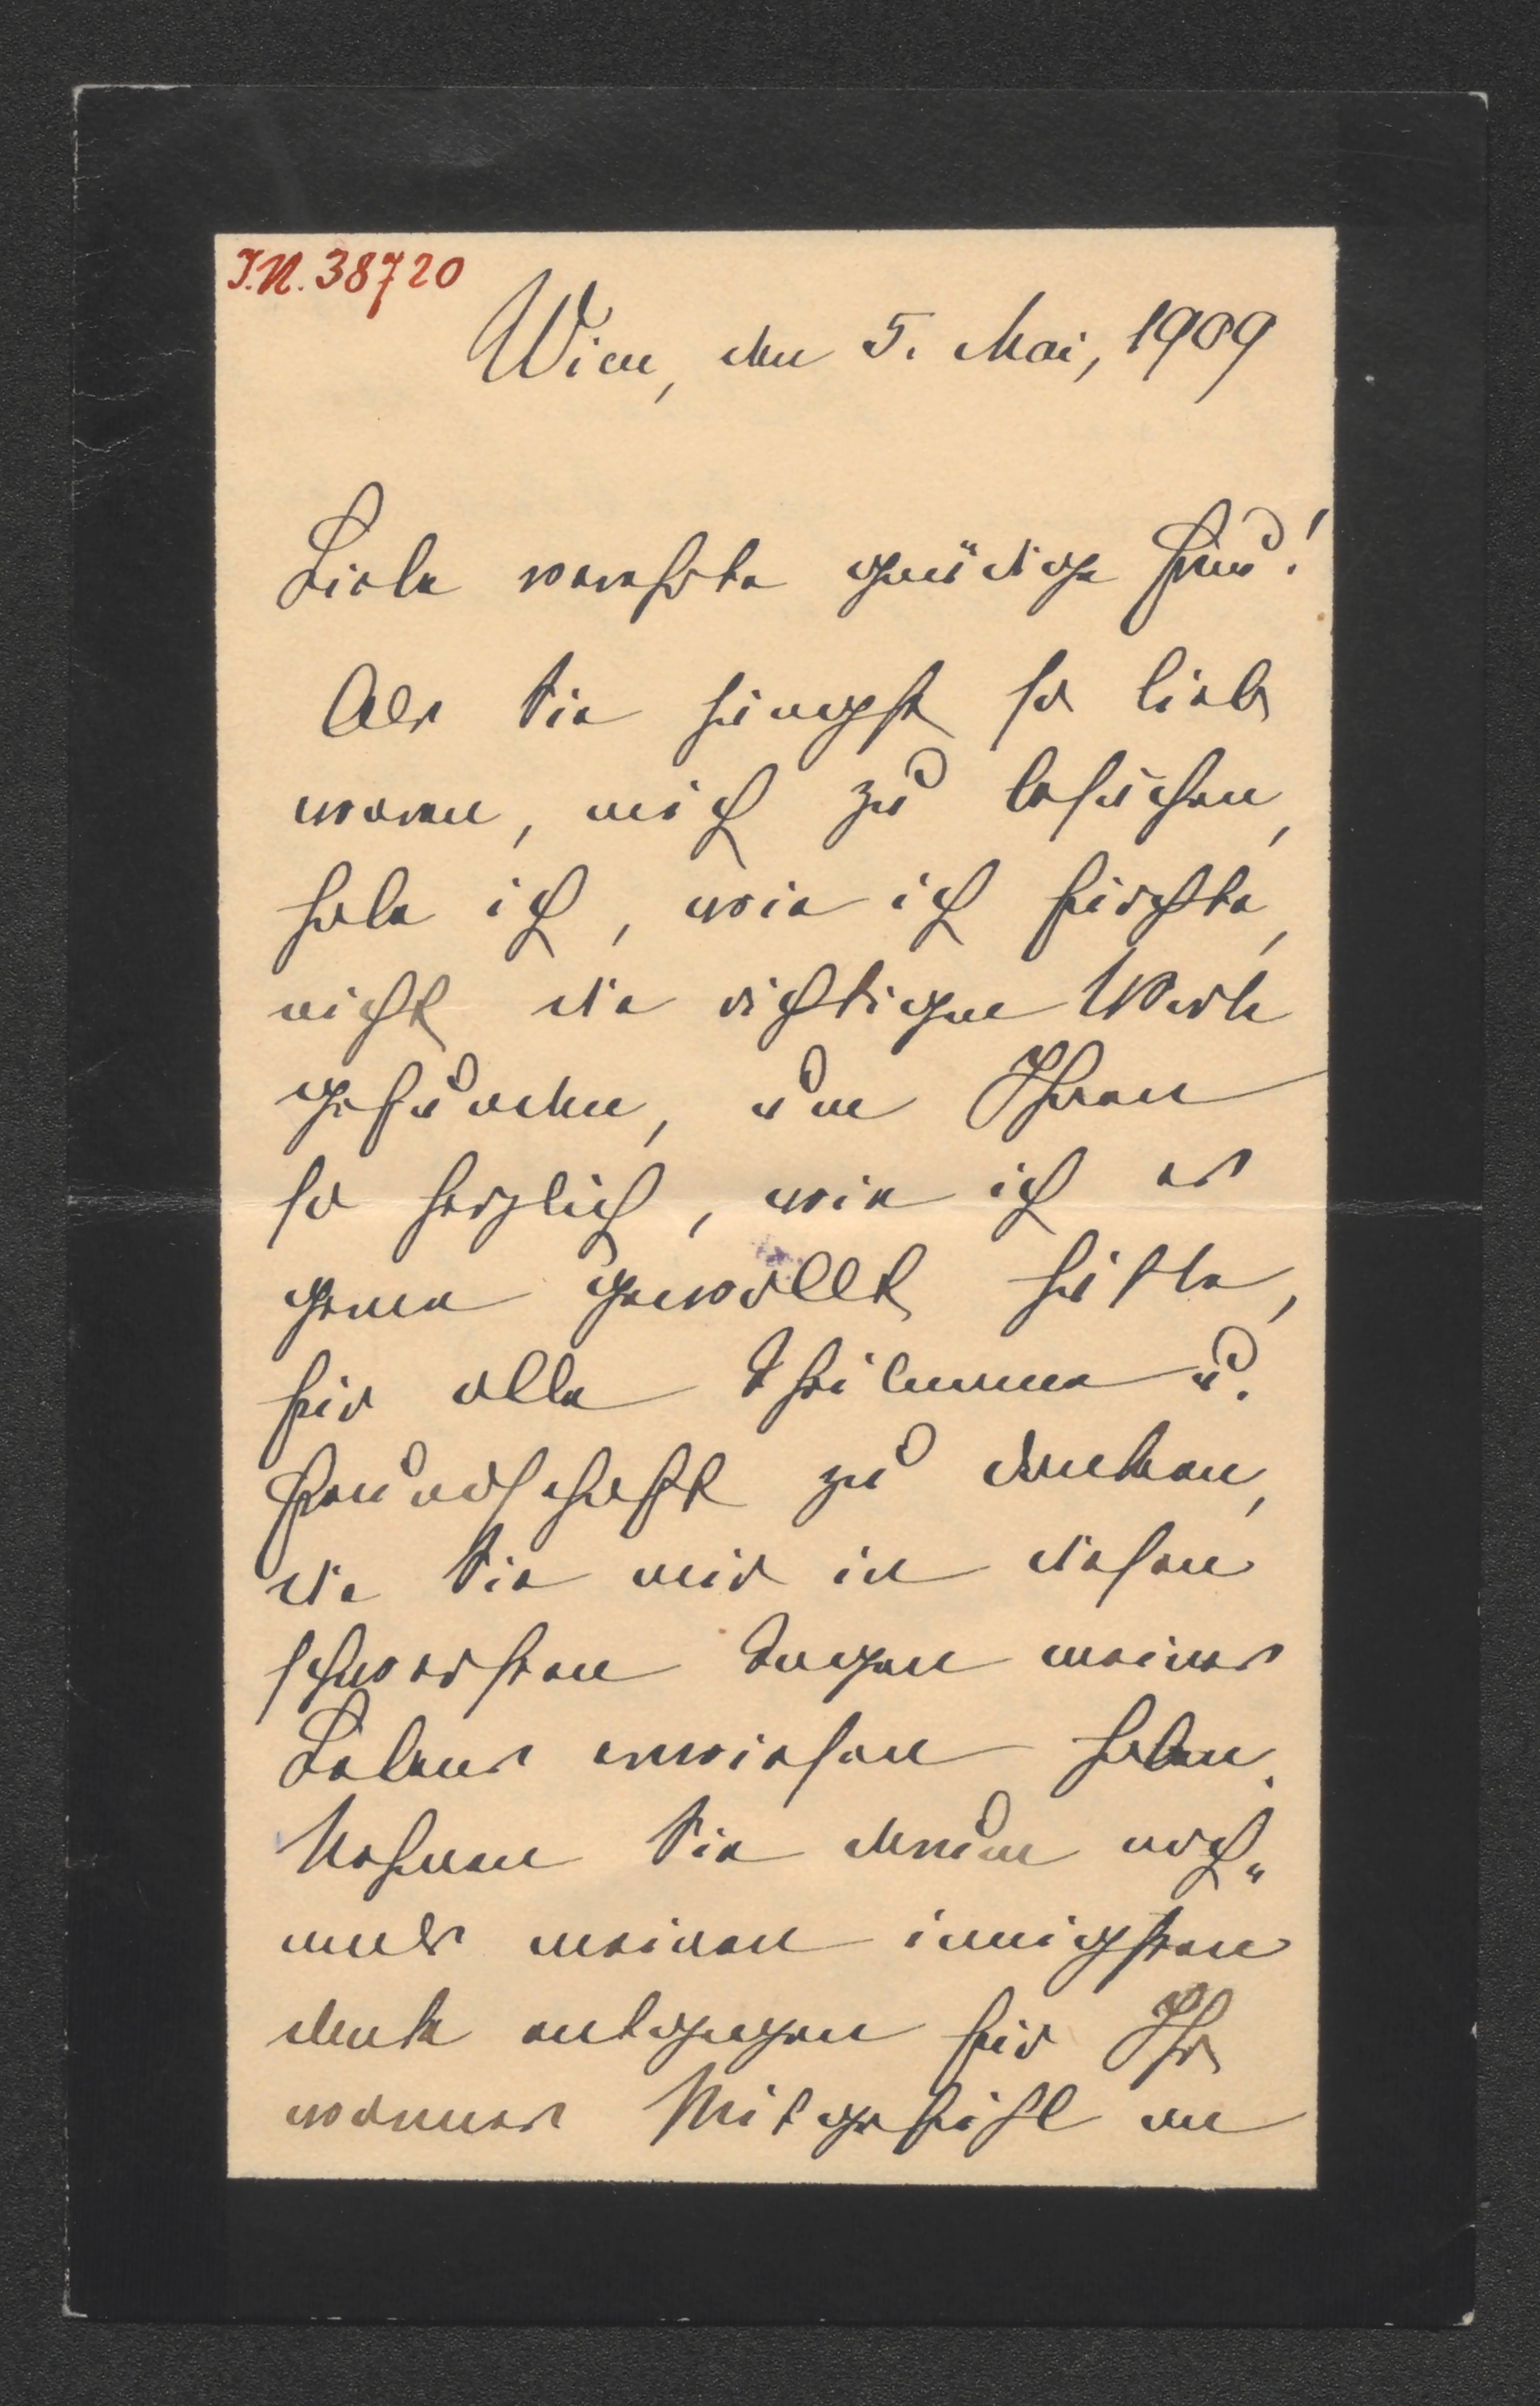 I.N. 38720
Wien, den 5. Mai, 1909
Liebe verehrte gnädige Frau!
Als Sie jüngst so lieb
waren, mich zu besuchen,
habe ich, wie ich fürchte,
nicht die richtigen Worte
gefunden, um Ihnen
so herzlich, wie ich es
gerne gewollt hätte,
für alle Theilname u.
Freundschaft zu danken,
die Sie mir in diesen
schwersten Tagen meines
Lebens erwiesen haben.
Nehmen Sie darum noch„
mals meinen innigsten
Dank entgegen für Ihr
warmes Mitgefühl an